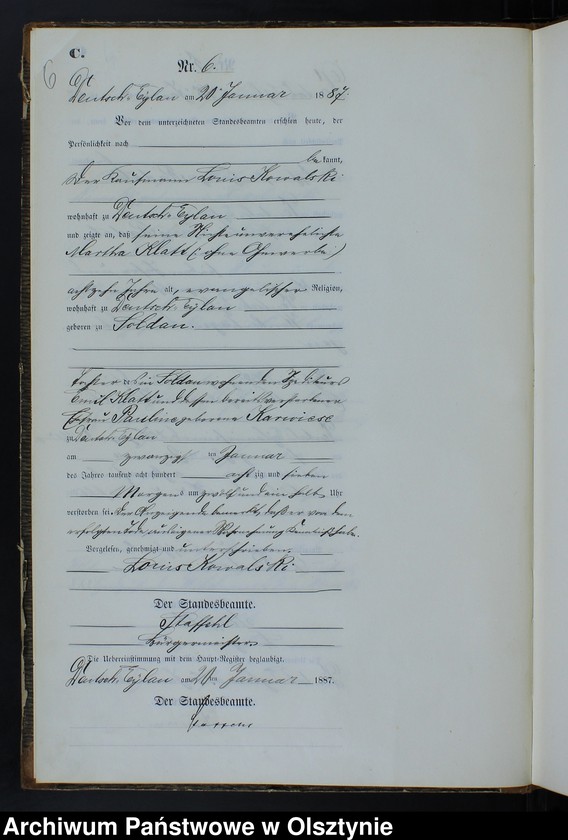 C.
6
Nr. 6.
Deutsch-Eylau am 20 Januar 1887.
Vor dem unterzeichneten Standesbeamten erschien heute, der
Persönlichkeit nach
bekannt,
der Kaufmann Louis Kowalski
wohnhaft zu Deutsch-Eylau
und zeigte an, daß seine Nichte unverehelichte
Martha Klatt (ohne Gewerbe)
achtzehn Jahre alt, evangelischer Religion,
wohnhaft zu Deutsch-Eylau
geboren zu Soldau.
Tochter des in Soldau wohnenden Spediteurs
Emil Klatt und dessen bereits verstorbenen
Ehefrau Pauline geborene Karwiese
zu Deutsch-Eylau
am zwanzigsten Januar
des Jahres tausend acht hundert achtzig und sieben
Morgens um zwölf und ein halb Uhr
verstorben sei. Der Anzeigende bemerkt, daß er von dem
erfolgten Tode aus eigener Kenntniß habe.
Vorgelesen, genehmigt und unterschrieben.
Louis Kowalski
Der Standesbeamte.
Staffehl
Bürgermeister
Die Uebereinstimmung mit dem Haupt-Register beglaubigt.
Deutsch-Eylau am 20ten Januar 1887.
Der Standesbeamte.
Archiwum Państwowe w Olsztynie